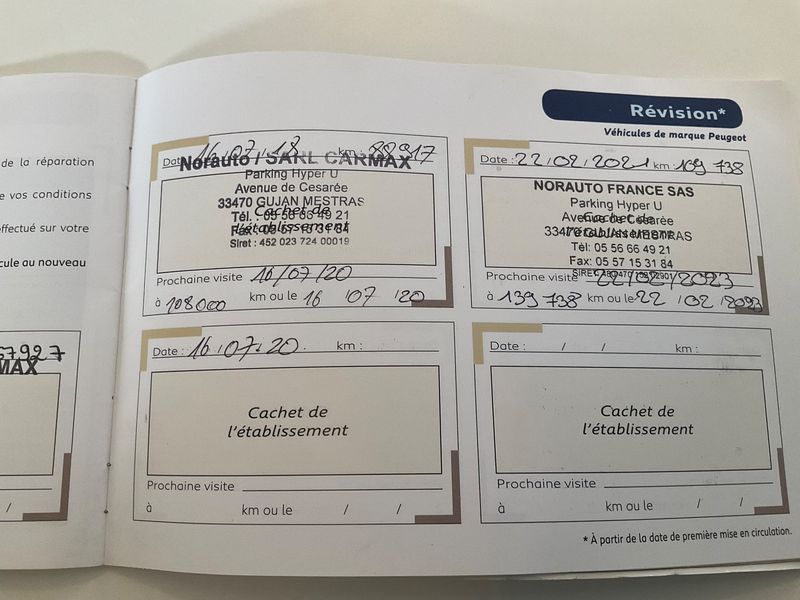 de la réparation
e vos conditions
effectué sur votre
cule au nouveau
57927
MAX
Révision*
Véhicules de marque Peugeot
Date : 16 / 07 / 18 km : 88917
Norauto / SARL CARMAX
Parking Hyper U
Avenue de Cesarée
33470 GUJAN MESTRAS
Tél. : 05 56 66 49 21
Cachet de
l'établissement
Siret : 452 023 724 00019
Prochaine visite 16/07/20
à 108000 km ou le 16 /07 /20
Date : 22 / 02 / 2021 km : 109 738
NORAUTO FRANCE SAS
Parking Hyper U
Avenue de Césarée
Cachet de
33470 GUJAN MESTRAS
l'établissement
Tél: 05 56 66 49 21
Fax: 05 57 15 31 84
Prochaine visite 22/02/2023
à 139 738 km ou le 22 / 02 / 2023
Date : 16 / 07 / 20 km :
Cachet de
l'établissement
Prochaine visite
à km ou le / /
Date : / / km :
Cachet de
l'établissement
Prochaine visite
à km ou le / /
/
* À partir de la date de première mise en circulation.